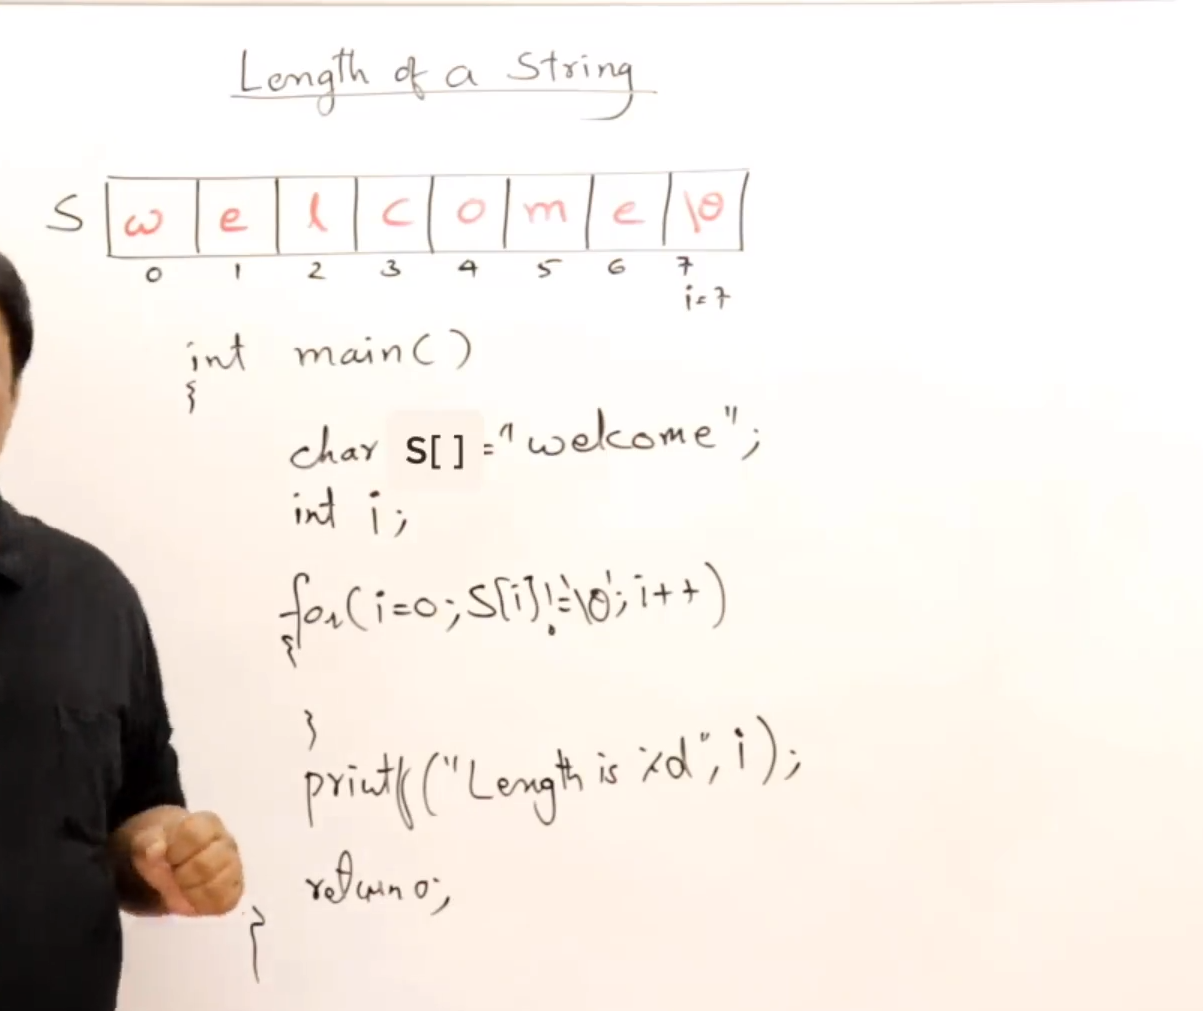 Length of a String
S w e l c o m e \0
0 1 2 3 4 5 6 7
i=7
int main()
{
char S[] ="welcome";
int i;
for(i=0;S[i]!='\0';i++)
{
}
printf("Length is %d",i);
return 0;
}